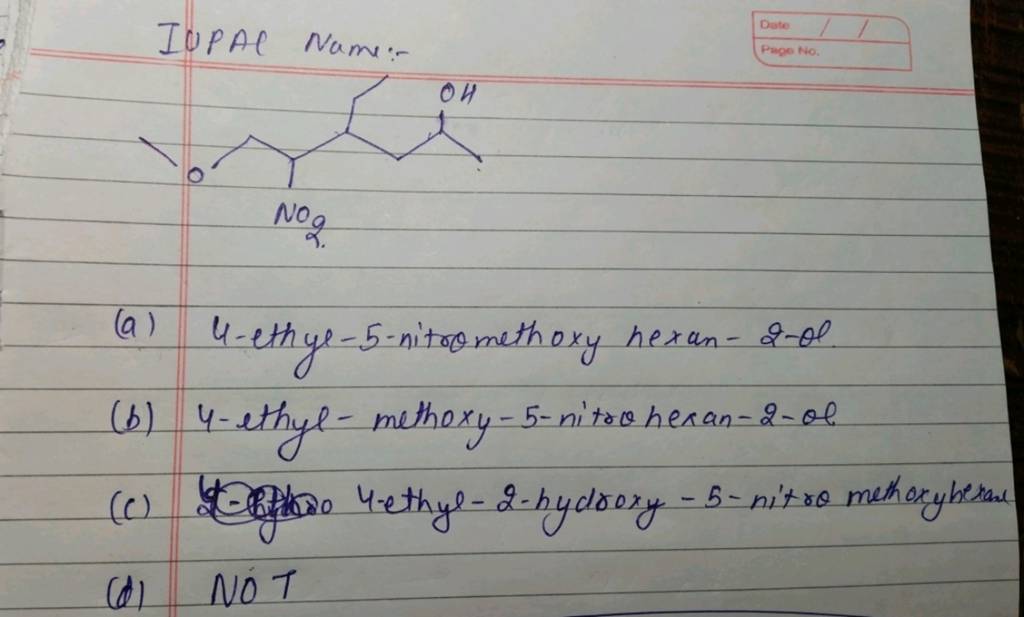 IUPAC Name:-
Date / /
Page No.
OH
O
NO2.
(a) 4-ethyl-5-nitromethoxy hexan-2-ol.
(b) 4-ethyl-methoxy-5-nitrohexan-2-ol
(c) 4-ethyl-2-hydroxy-5-nitro methoxyhexane
(d) NOT